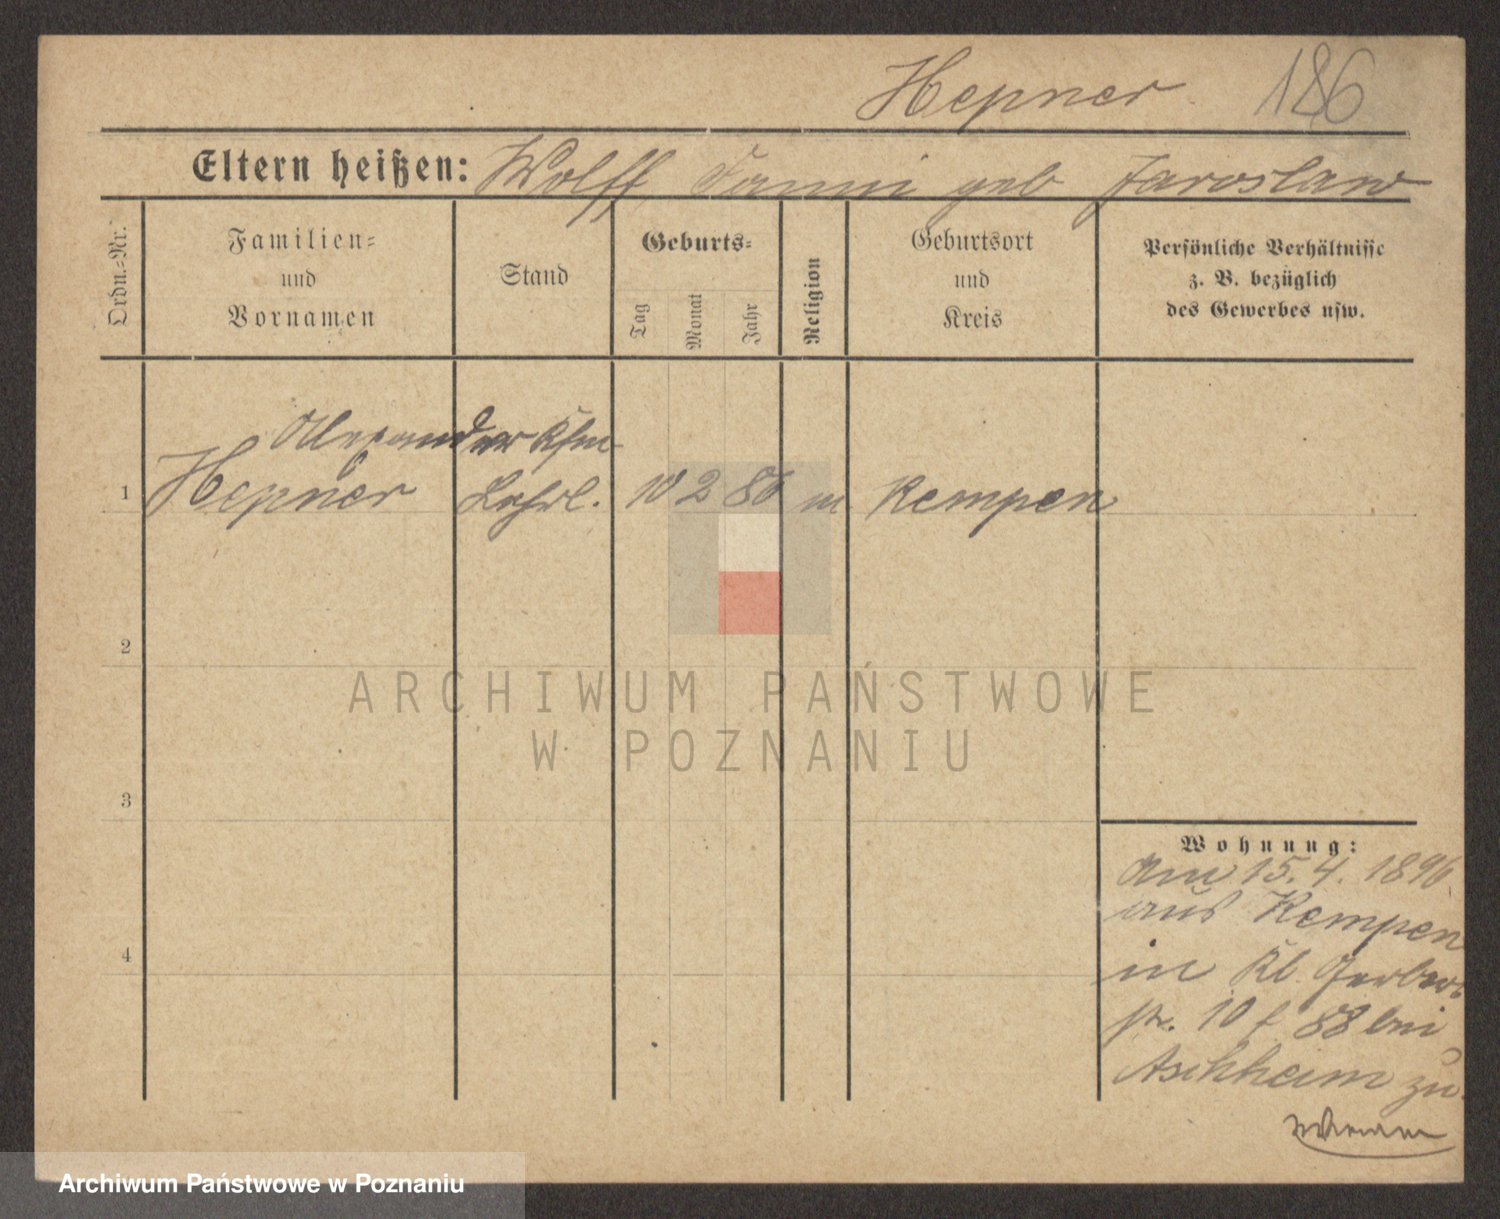 Hepner 186
Eltern heißen: Wolff, Fanni geb Jaroslaw
Ordn.-Nr.
Familien-
und
Vornamen
Stand
Geburts-
Tag
Monat
Jahr
Religion
Geburtsort
und
Kreis
Persönliche Verhältnisse
z. B. bezüglich
des Gewerbes usw.
Alexander Kfm
1 Hepner Lehrl. 10 2 80 m Kempen
2
3
4
Wohnung:
Am 15.4. 1896
aus Kempen
in Kl. Gerber
str. 10 f 88 bei
Aschheim zu.
ARCHIWUM PAŃSTWOWE
W POZNANIU
Archiwum Państwowe w Poznaniu